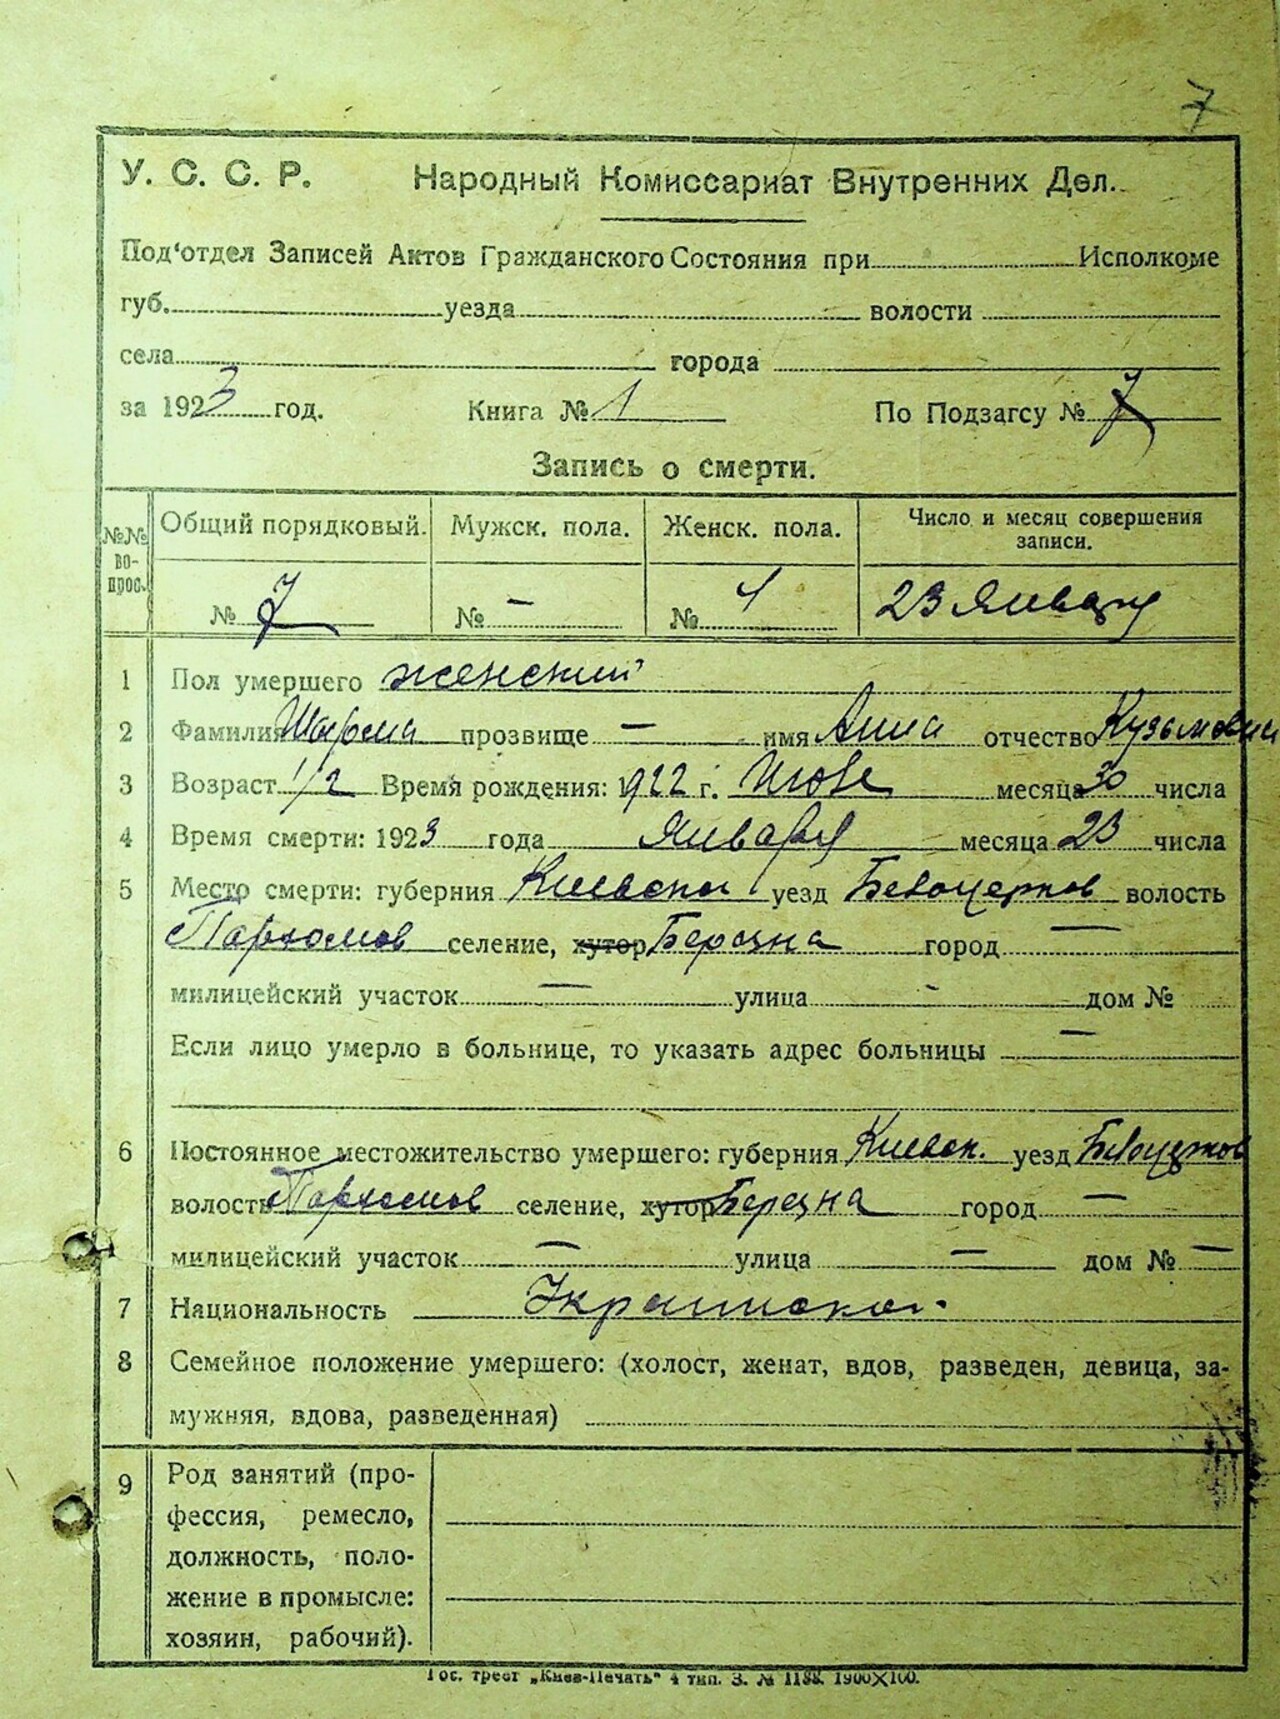 7
У. С. С. Р. Народный Комиссариат Внутренних Дел.
Под‘отдел Записей Актов Гражданского Состояния при Исполкоме
губ. уезда волости
села города
за 1923 год. Книга № 1 По Подзагсу № 7
Запись о смерти.
№№ вопрос. Общий порядковый. Мужск. пола. Женск. пола. Число и месяц совершения записи.
№ 7 № — № 4 23 Января
1 Пол умершего женский
2 Фамилия прозвище — имя Анна отчество Кузьмовна
3 Возраст 1/2 Время рождения: 1922 г. Июля месяца 30 числа
4 Время смерти: 1923 года Января месяца 23 числа
5 Место смерти: губерния Киевская уезд Белоцерков волость
Пархомов селение, хутор Березна город —
милицейский участок — улица - дом №
Если лицо умерло в больнице, то указать адрес больницы —
6 Постоянное местожительство умершего: губерния Киевск. уезд Белоцерков
волость Пархомов селение, хутор Березна город —
милицейский участок — улица — дом № —
7 Национальность Украинская.
8 Семейное положение умершего: (холост, женат, вдов, разведен, девица, за-
мужняя, вдова, разведенная)
9 Род занятий (про-
фессия, ремесло,
должность, поло-
жение в промысле:
хозяин, рабочий).
Гос. трест „Киев-Печать“ 4 тип. З. № 1188. 1900X100.